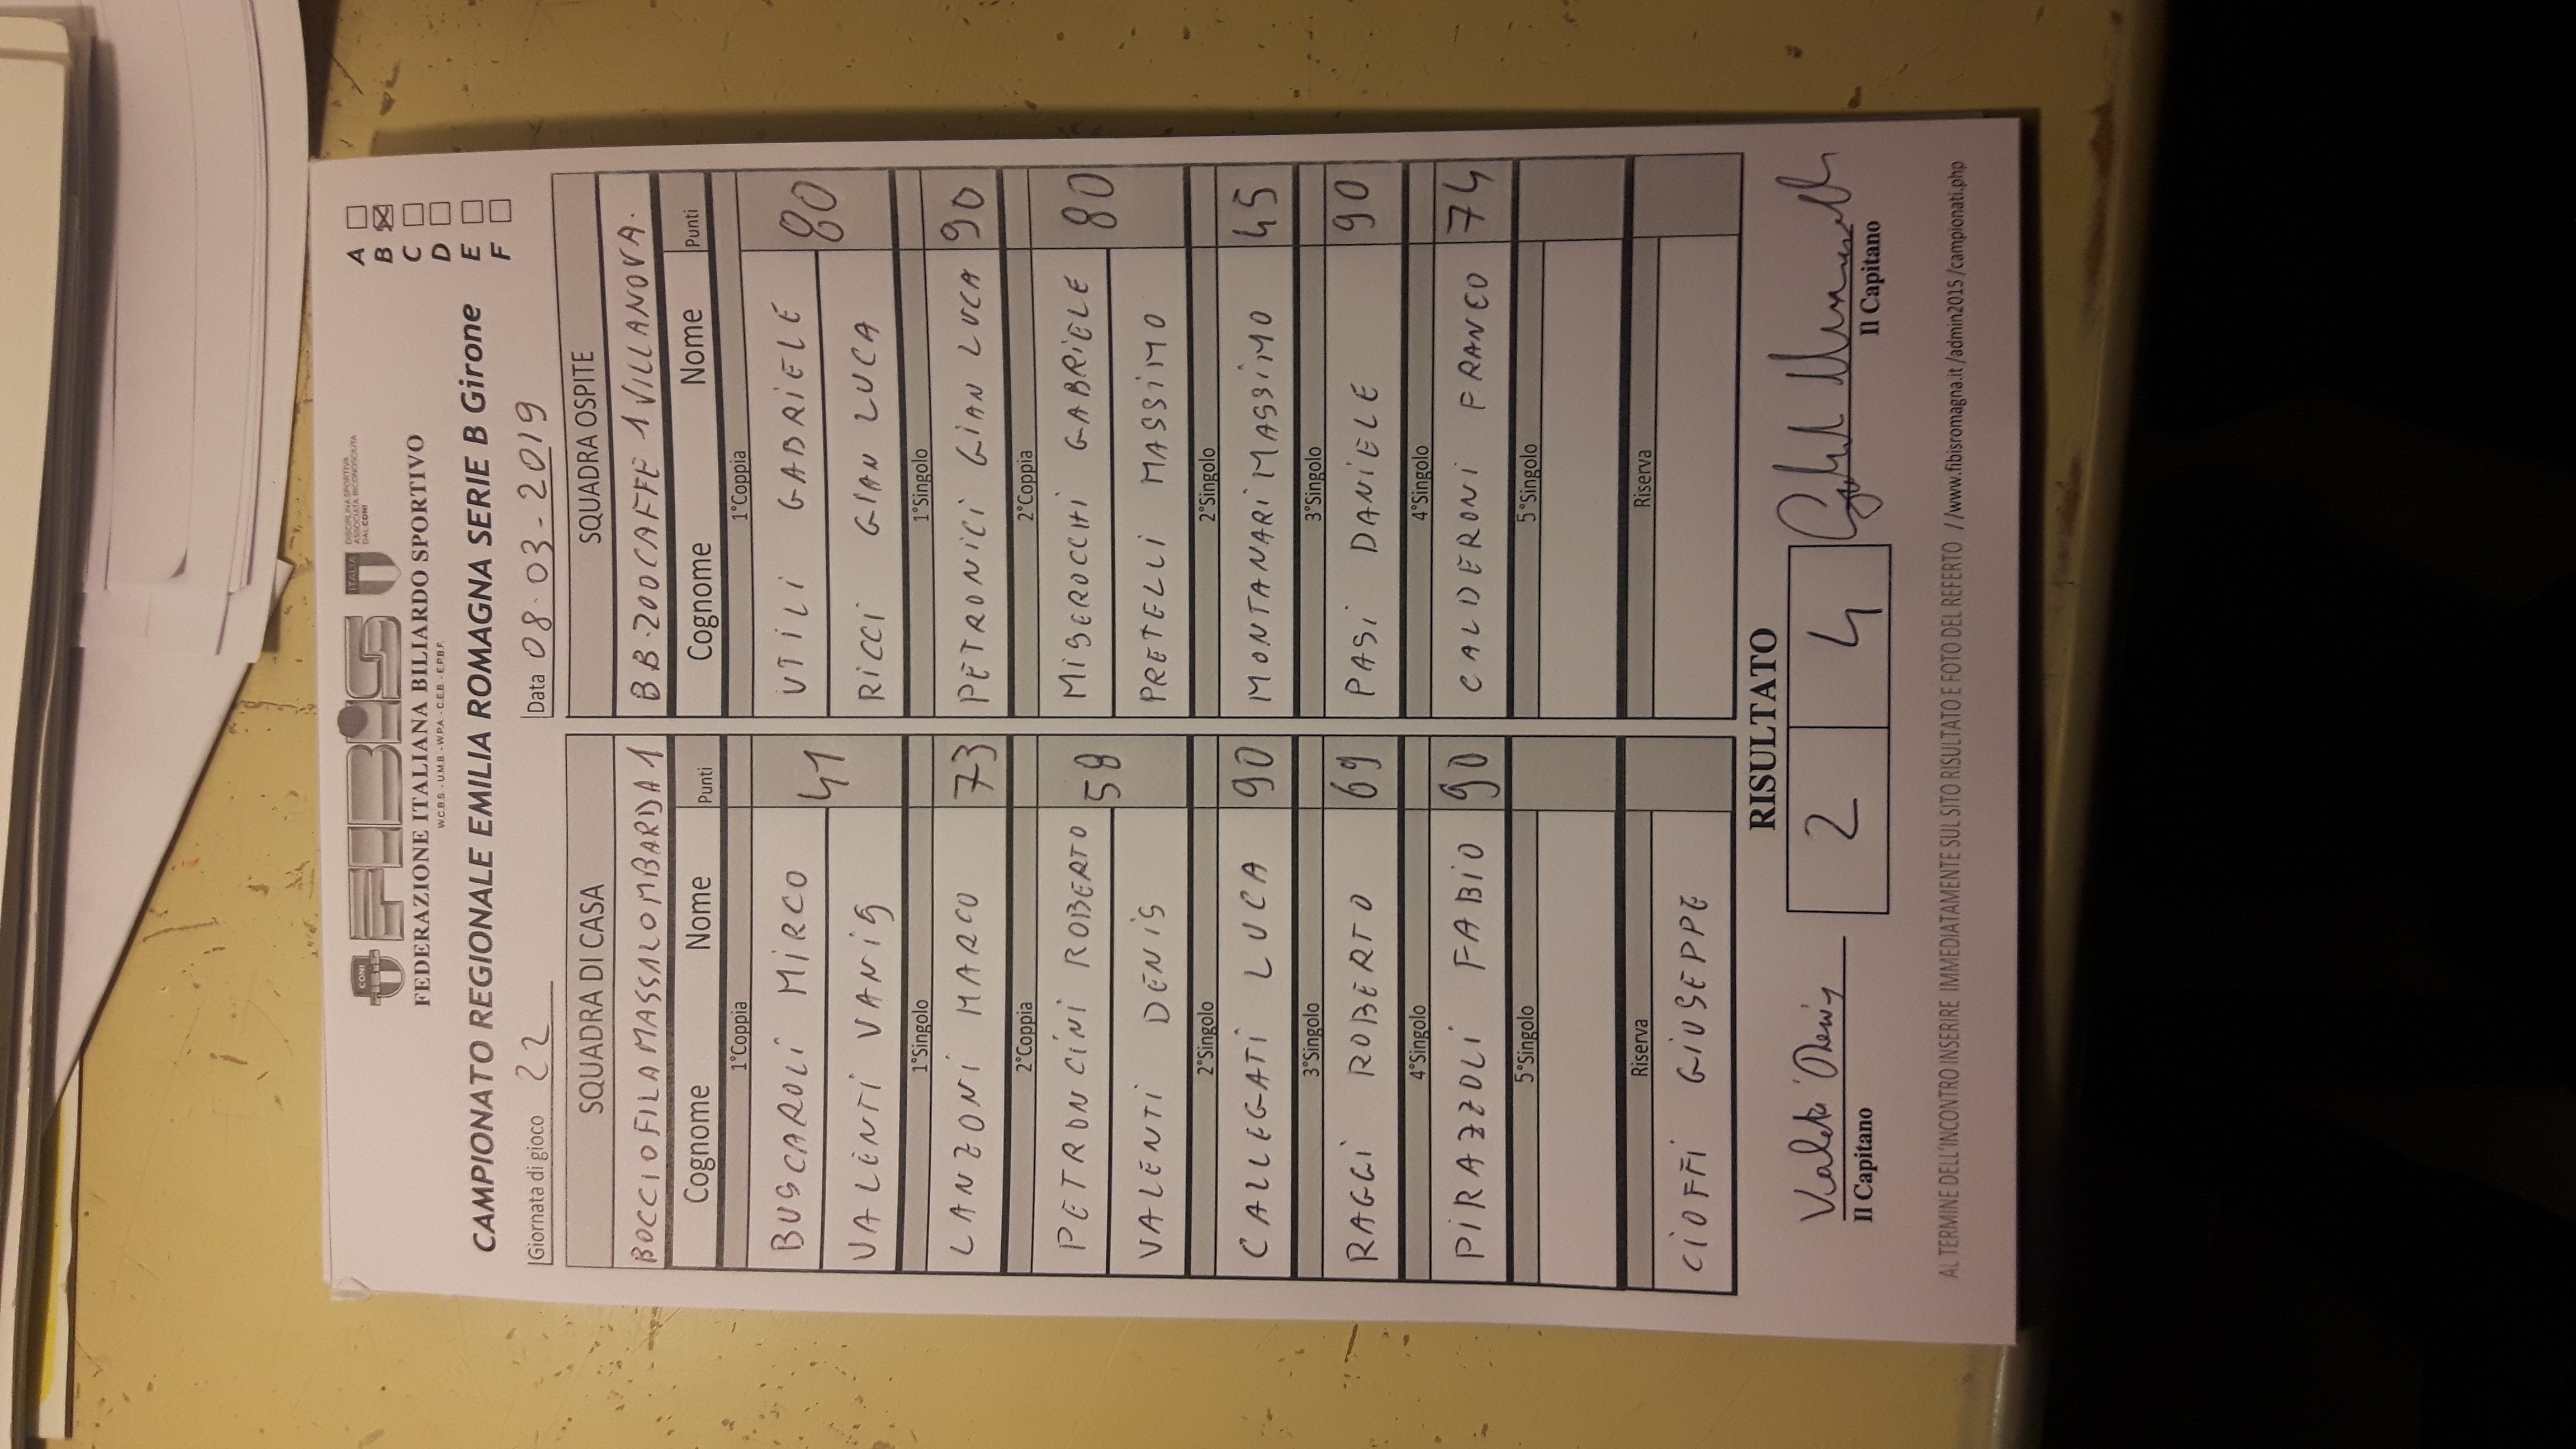 CONI FIBiS ITALIA DISCIPLINA SPORTIVA ASSOCIATA RICONOSCIUTA DAL CONI
FEDERAZIONE ITALIANA BILIARDO SPORTIVO
W.C.B.S. - U.M.B. - W.P.A. - C.E.B. - E.P.B.F.
CAMPIONATO REGIONALE EMILIA ROMAGNA SERIE B Girone
A
B
C
D
E
F
Giornata di gioco 22 Data 08-03-2019
SQUADRA DI CASA SQUADRA OSPITE
BOCCIOFILA MASSALOMBARDA 1 BB.2000 CAFFE 1 VILLANOVA.
Cognome Nome Punti Cognome Nome Punti
1°Coppia 1°Coppia
BUSCAROLI MIRCO 41 UTILI GABRIELE 80
VALENTI VANIS RICCI GIAN LUCA
1°Singolo 1°Singolo
LANZONI MARCO 73 PETRONICI GIAN LUCA 90
2°Coppia 2°Coppia
PETRONCINI ROBERTO 58 MISEROCCHI GABRIELE 80
VALENTI DENIS PRETELLI MASSIMO
2°Singolo 2°Singolo
CALLEGATI LUCA 90 MONTANARI MASSIMO 45
3°Singolo 3°Singolo
RAGGI ROBERTO 69 PASI DANIELE 90
4°Singolo 4°Singolo
PIRAZZOLI FABIO 90 CALDERONI FRANCO 74
5°Singolo 5°Singolo
Riserva Riserva
CIOFFI GIUSEPPE
RISULTATO
Valenti Denis 2 4
Il Capitano Il Capitano
AL TERMINE DELL'INCONTRO INSERIRE IMMEDIATAMENTE SUL SITO RISULTATO E FOTO DEL REFERTO //www.fibisromagna.it/admin2015/campionati.php